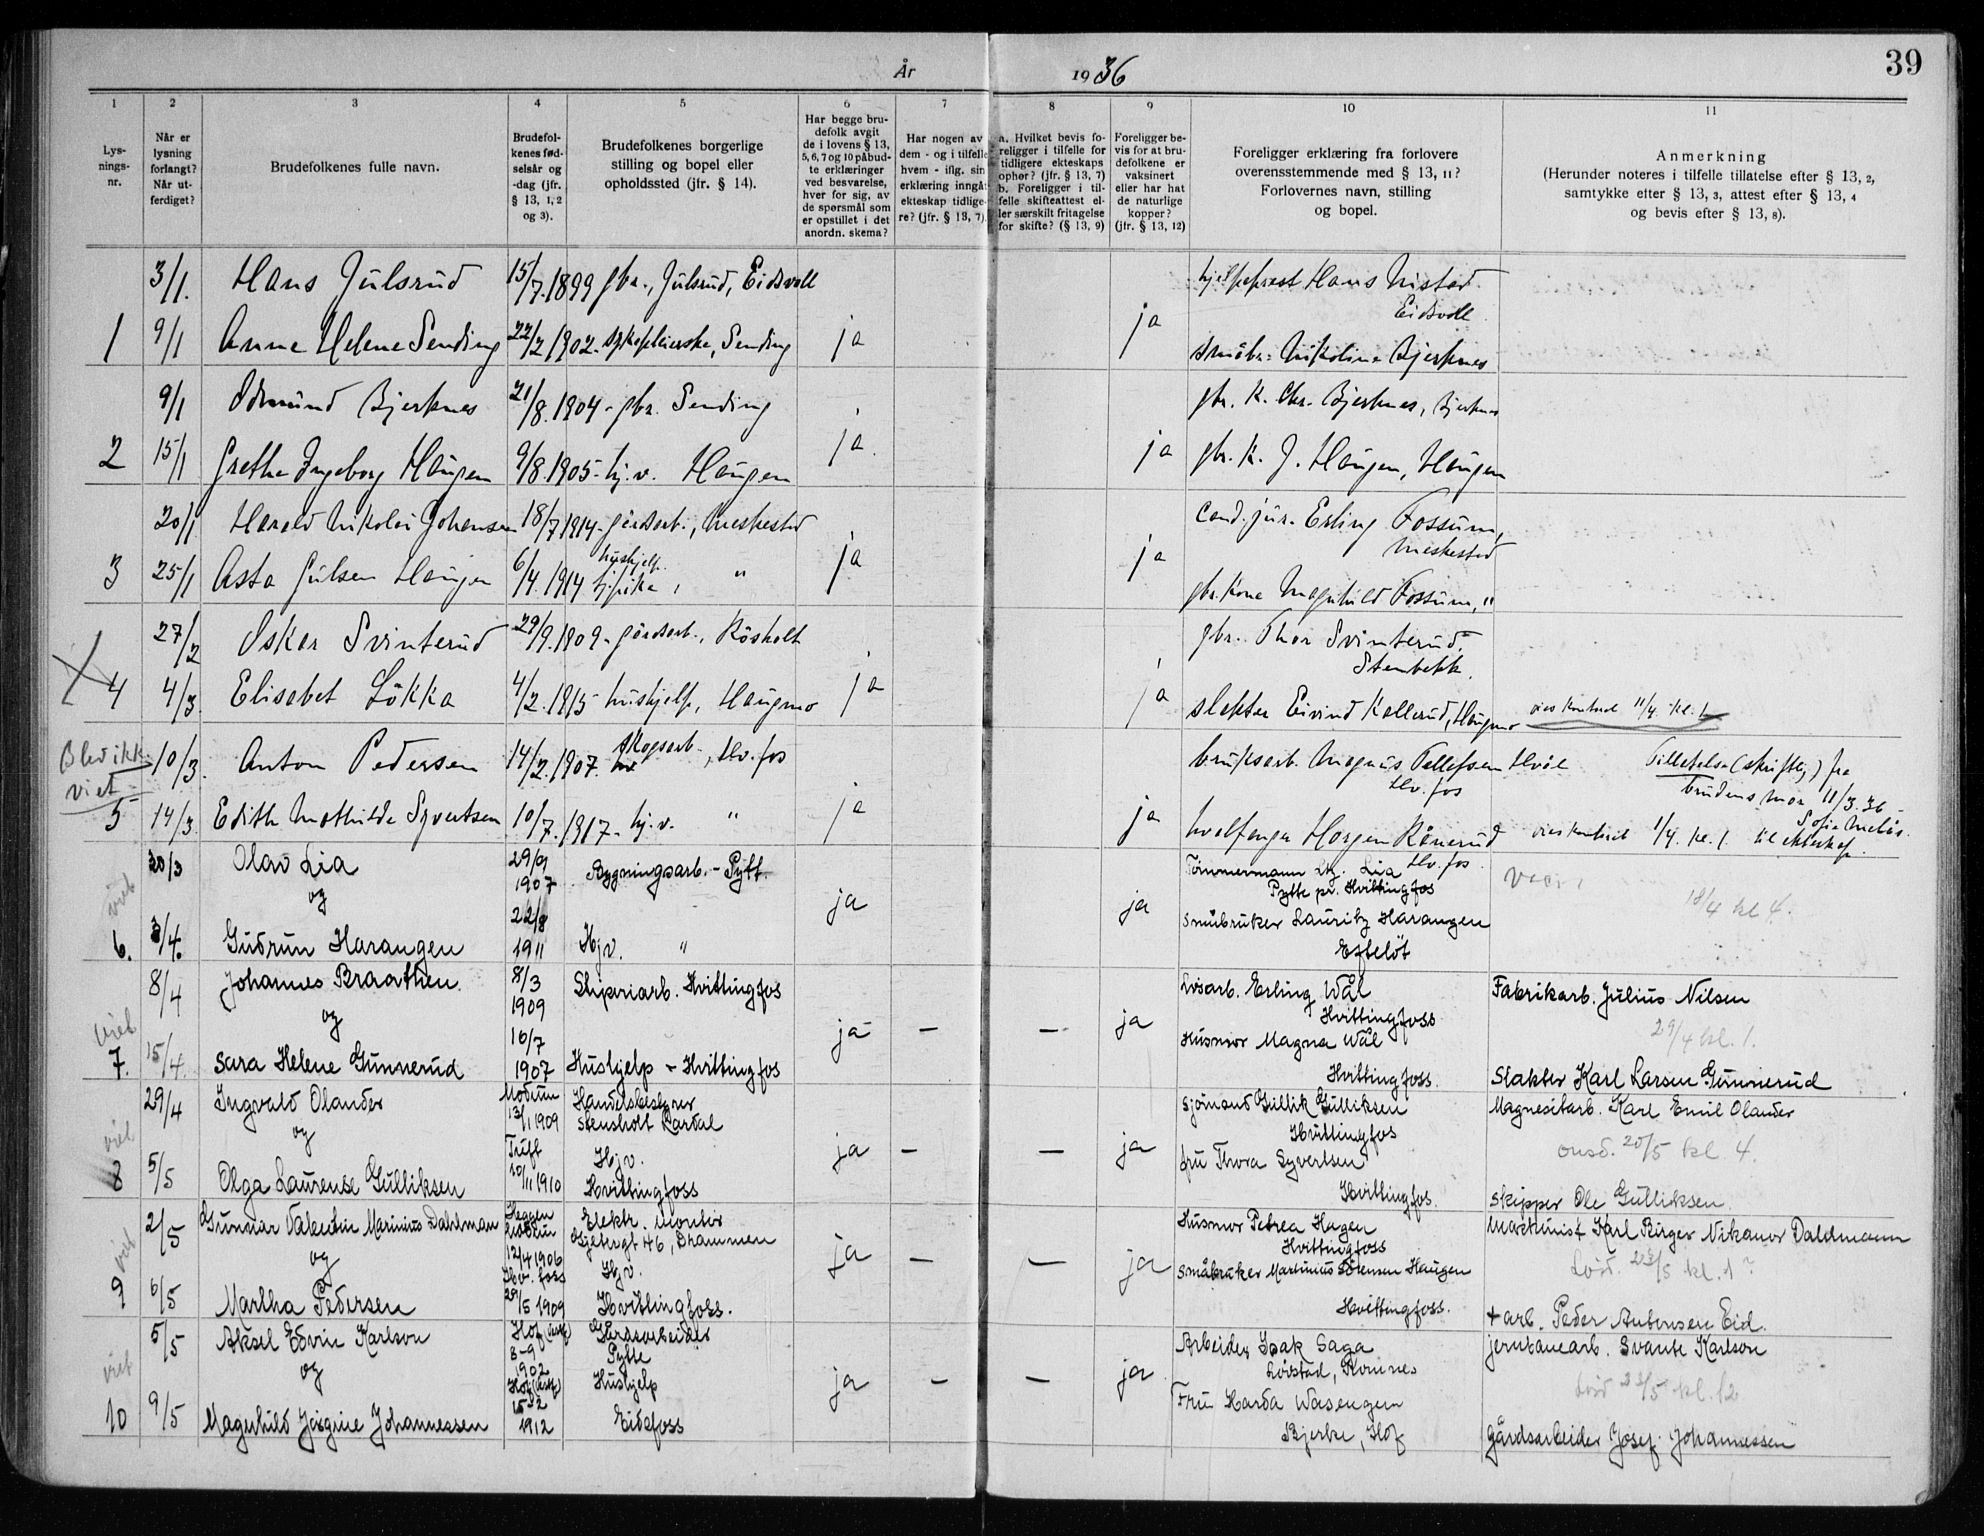 39
År 1936
1 2 3 4 5 6 7 8 9 10 11
Lys-
nings-
nr.
Når er
lysning
forlangt?
Når ut-
ferdiget?
Brudefolkenes fulle navn.
Brudefol-
kenes fød-
selsår og
-dag (jfr.
§ 13, 1, 2
og 3).
Brudefolkenes borgerlige
stilling og bopel eller
opholdssted (jfr. § 14).
Har begge bru-
defolk avgit
de i lovens § 13,
5, 6, 7 og 10 påbud-
te erklæringer
ved besvarelse,
hver for sig, av
de spørsmål som
er opstillet i det
anordn. skema?
Har nogen av
dem - og i tilfelle
hvem - iflg. sin
erklæring inngå
ekteskap tidlige-
re? (jfr. § 13, 7).
a. Hvilket bevis fo-
religger i tilfelle for
tidligere ekteskaps
ophør? (jfr. § 13, 7)
b. Foreligger i til-
felle skifteattest el-
ler særskilt fritagelse
for skifte? (§ 13, 9)
Foreligger be-
vis for at bru-
defolkene er
vaksinert
eller har hat
de naturlige
kopper?
(jfr. § 13, 12)
Foreligger erklæring fra forlovere
overensstemmende med § 13, 11?
Forlovernes navn, stilling
og bopel.
Anmerkning
(Herunder noteres i tilfelle tillatelse efter § 13, 2,
samtykke efter § 13, 3, attest efter § 13, 4
og bevis efter § 13, 8).
3/1. Hans Julsrud 15/7. 1899 gbr., Julsrud, Eidsvoll hjelpeprest Hans Nistad
Eidsvoll
1 9/1 Anne Helene Sending 22/2 1902. sykepleierske, Sending ja ja småbr. Nikoline Bjerknes
9/1 Odmund Bjerknes 21/8. 1904 - gbr. Sending gbr. K. Chr. Bjerknes, Bjerknes
2 15/1 Grethe Ingeborg Haugen 9/8. 1905 - hj.v. Haugen ja. ja gbr. K. J. Haugen, Haugen
20/1 Harald Nikolai Johansen 18/7 1914 - gårdsarb., Meshestad cand. jur. Erling Fossum,
Meshestad
3 25/1 Asta Julsen Haugen 6/4. 1914 hushjelp " ja ja
gbr.kone Magnhild Fossum, "
27/2 Oskar Svinterud 29/9. 1909 - gårdsarb., Råsholt gbr. Thor Svinterud
Stenbekk.
4 4/3. Elisabet Lökka 4/2. 1915 - hushjelp, Haugmo ja ja slakter Eivind Kollerud, Haugmo vies kontrad 11/4. kl. 1
Blev ikke
viet
10/3. Anton Pedersen 14/2. 1907. skogsarb., Hv.fos bruksarb. Magnus Tollefsen Hvål
Hv. fos
Tilletelse (skriftlig) fra
brudens mor 11/3. 36 -
5 14/3. Edith Mathilde Syvertsen 10/7. 1917 - hj.v. " ja ja hvalfanger Horgen Rånerud
Hv. fos
vies kontrad 1/4. kl. 1. til ekteskap.
viet
30/3 Olav Lia 29/9 1907 Bygningsarb. - Pytt. Tømmermann Lia
Pytte pr. Hvittingfos
og ja ja 18/4 kl 4.
6. 3/4. Gudrun Harangen 22/8 1911 Hjv. " Småbruker Lauritz Harangen
Efteløt
8/4 Johannes Braathen. 8/3 1909 Sliperiarb. Hvittingfos Løsarb. Erling Wål
Hvittingfoss
Fabrikarb. Julius Nilsen
viet og ja - - ja 29/4 kl. 1.
7. 15/4. Sara Helene Gunnerud 10/7 1907 Hushjelp - Hvittingfos Husmor Magna Wål
Hvittingfoss.
Slakter Karl Larsen Gunnerud
29/4 Ingvald Olander Modum 13/1 1909 Handelsbestyrer
Stensholt Lardal
Sjömand Gullik Gulliksen
Hvittingfos
Magnesitarb. Karl Emil Olander
viet og ja - - ja onsd. 20/5 kl. 4.
8 5/5 Olga Laurense Gulliksen Tuft 10/11 1910 Hjv.
Hvittingfoss
fru Thora Syvertsen
Hvittingfos.
Skipper Ole Gulliksen.
2/5 Gunnar Valentin Marinius Dahlman Heggen
Modum
12/4 1906 Elektr. Montör
Gjetergt 46, Drammen
Husmor Petrea Hagen
Hvittingfoss
Maskinist Karl Birger Nikanor Daldmann
viet og ja - - ja Lörd. 23/5 kl. 1?
9 6/5 Martha Pedersen Hv. foss
29/5 1909 Hjv.
Hvittingfoss.
Småbruker Martinius Sörensen Haugen
Hvittingfoss.
+ arb. Peder Antonsen Eid.
5/5 Aksel Edvin Karlson Hof (Vestf)
8-9
1902 Gårdsarbeider
Pytte
Arbeider Isak Saga
Lövstad, Komnes
jernbanearb. Svante Karlson
viet og ja - - ja Lörd 23/5 kl. 12
10 9/5 Magnhild Jörgine Johannessen Hof (Vestf)
1912 Hushjelp
Eidsfoss
Fru Harda Wasengen
Bjerke, Hof
Gårdsarbeider Josef Johannessen